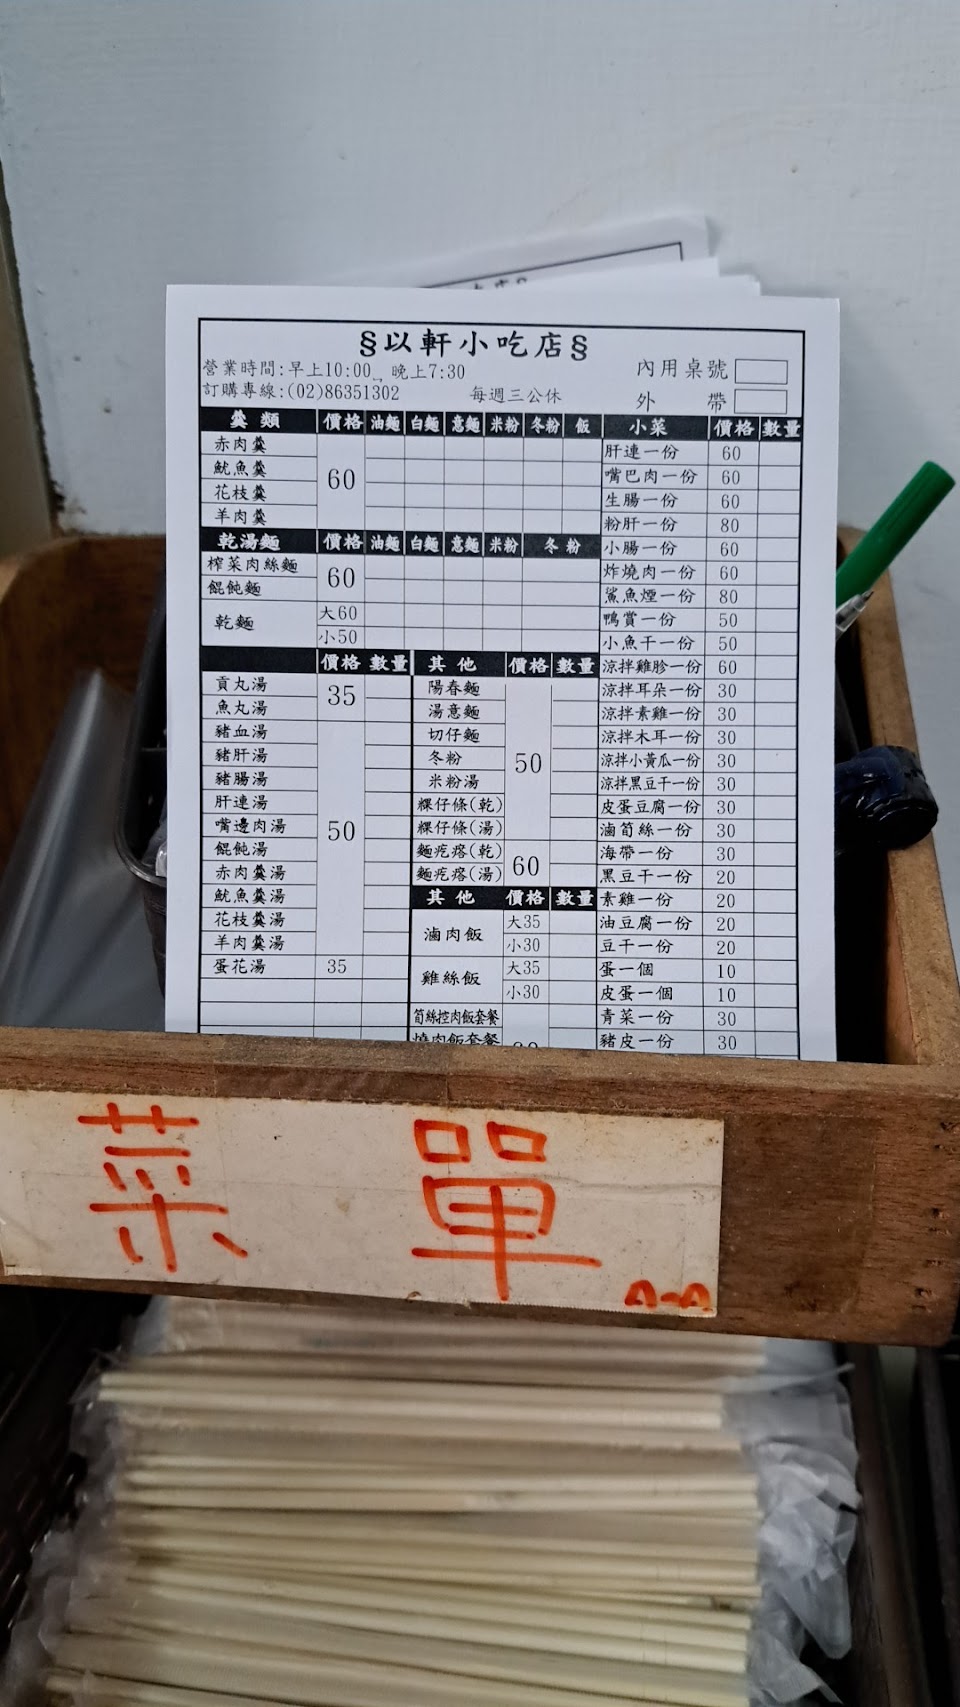 §以軒小吃店§
營業時間:早上10:00~晚上7:30
訂購專線:(02)86351302 每週三公休
內用桌號
外帶
羹類 價格 油麵 白麵 意麵 米粉 冬粉 飯
赤肉羹
魷魚羹
花枝羹
羊肉羹
60
乾湯麵 價格 油麵 白麵 意麵 米粉 冬粉
榨菜肉絲麵
餛飩麵
60
乾麵 大60
小50
價格 數量
貢丸湯
魚丸湯
35
豬血湯
豬肝湯
豬腸湯
肝連湯
嘴邊肉湯
餛飩湯
赤肉羹湯
魷魚羹湯
花枝羹湯
羊肉羹湯
50
蛋花湯 35
其他 價格 數量
陽春麵
湯意麵
切仔麵
冬粉
米粉湯
粿仔條(乾)
粿仔條(湯)
50
麵疙瘩(乾)
麵疙瘩(湯)
60
其他 價格 數量
滷肉飯 大35
小30
雞絲飯 大35
小30
筍絲控肉飯套餐
燒肉飯套餐
小菜 價格 數量
肝連一份 60
嘴巴肉一份 60
生腸一份 60
粉肝一份 80
小腸一份 60
炸燒肉一份 60
鯊魚煙一份 80
鴨賞一份 50
小魚干一份 50
涼拌雞胗一份 60
涼拌耳朵一份 30
涼拌素雞一份 30
涼拌木耳一份 30
涼拌小黃瓜一份 30
涼拌黑豆干一份 30
皮蛋豆腐一份 30
滷筍絲一份 30
海帶一份 30
黑豆干一份 20
素雞一份 20
油豆腐一份 20
豆干一份 20
蛋一個 10
皮蛋一個 10
青菜一份 30
豬皮一份 30
菜單